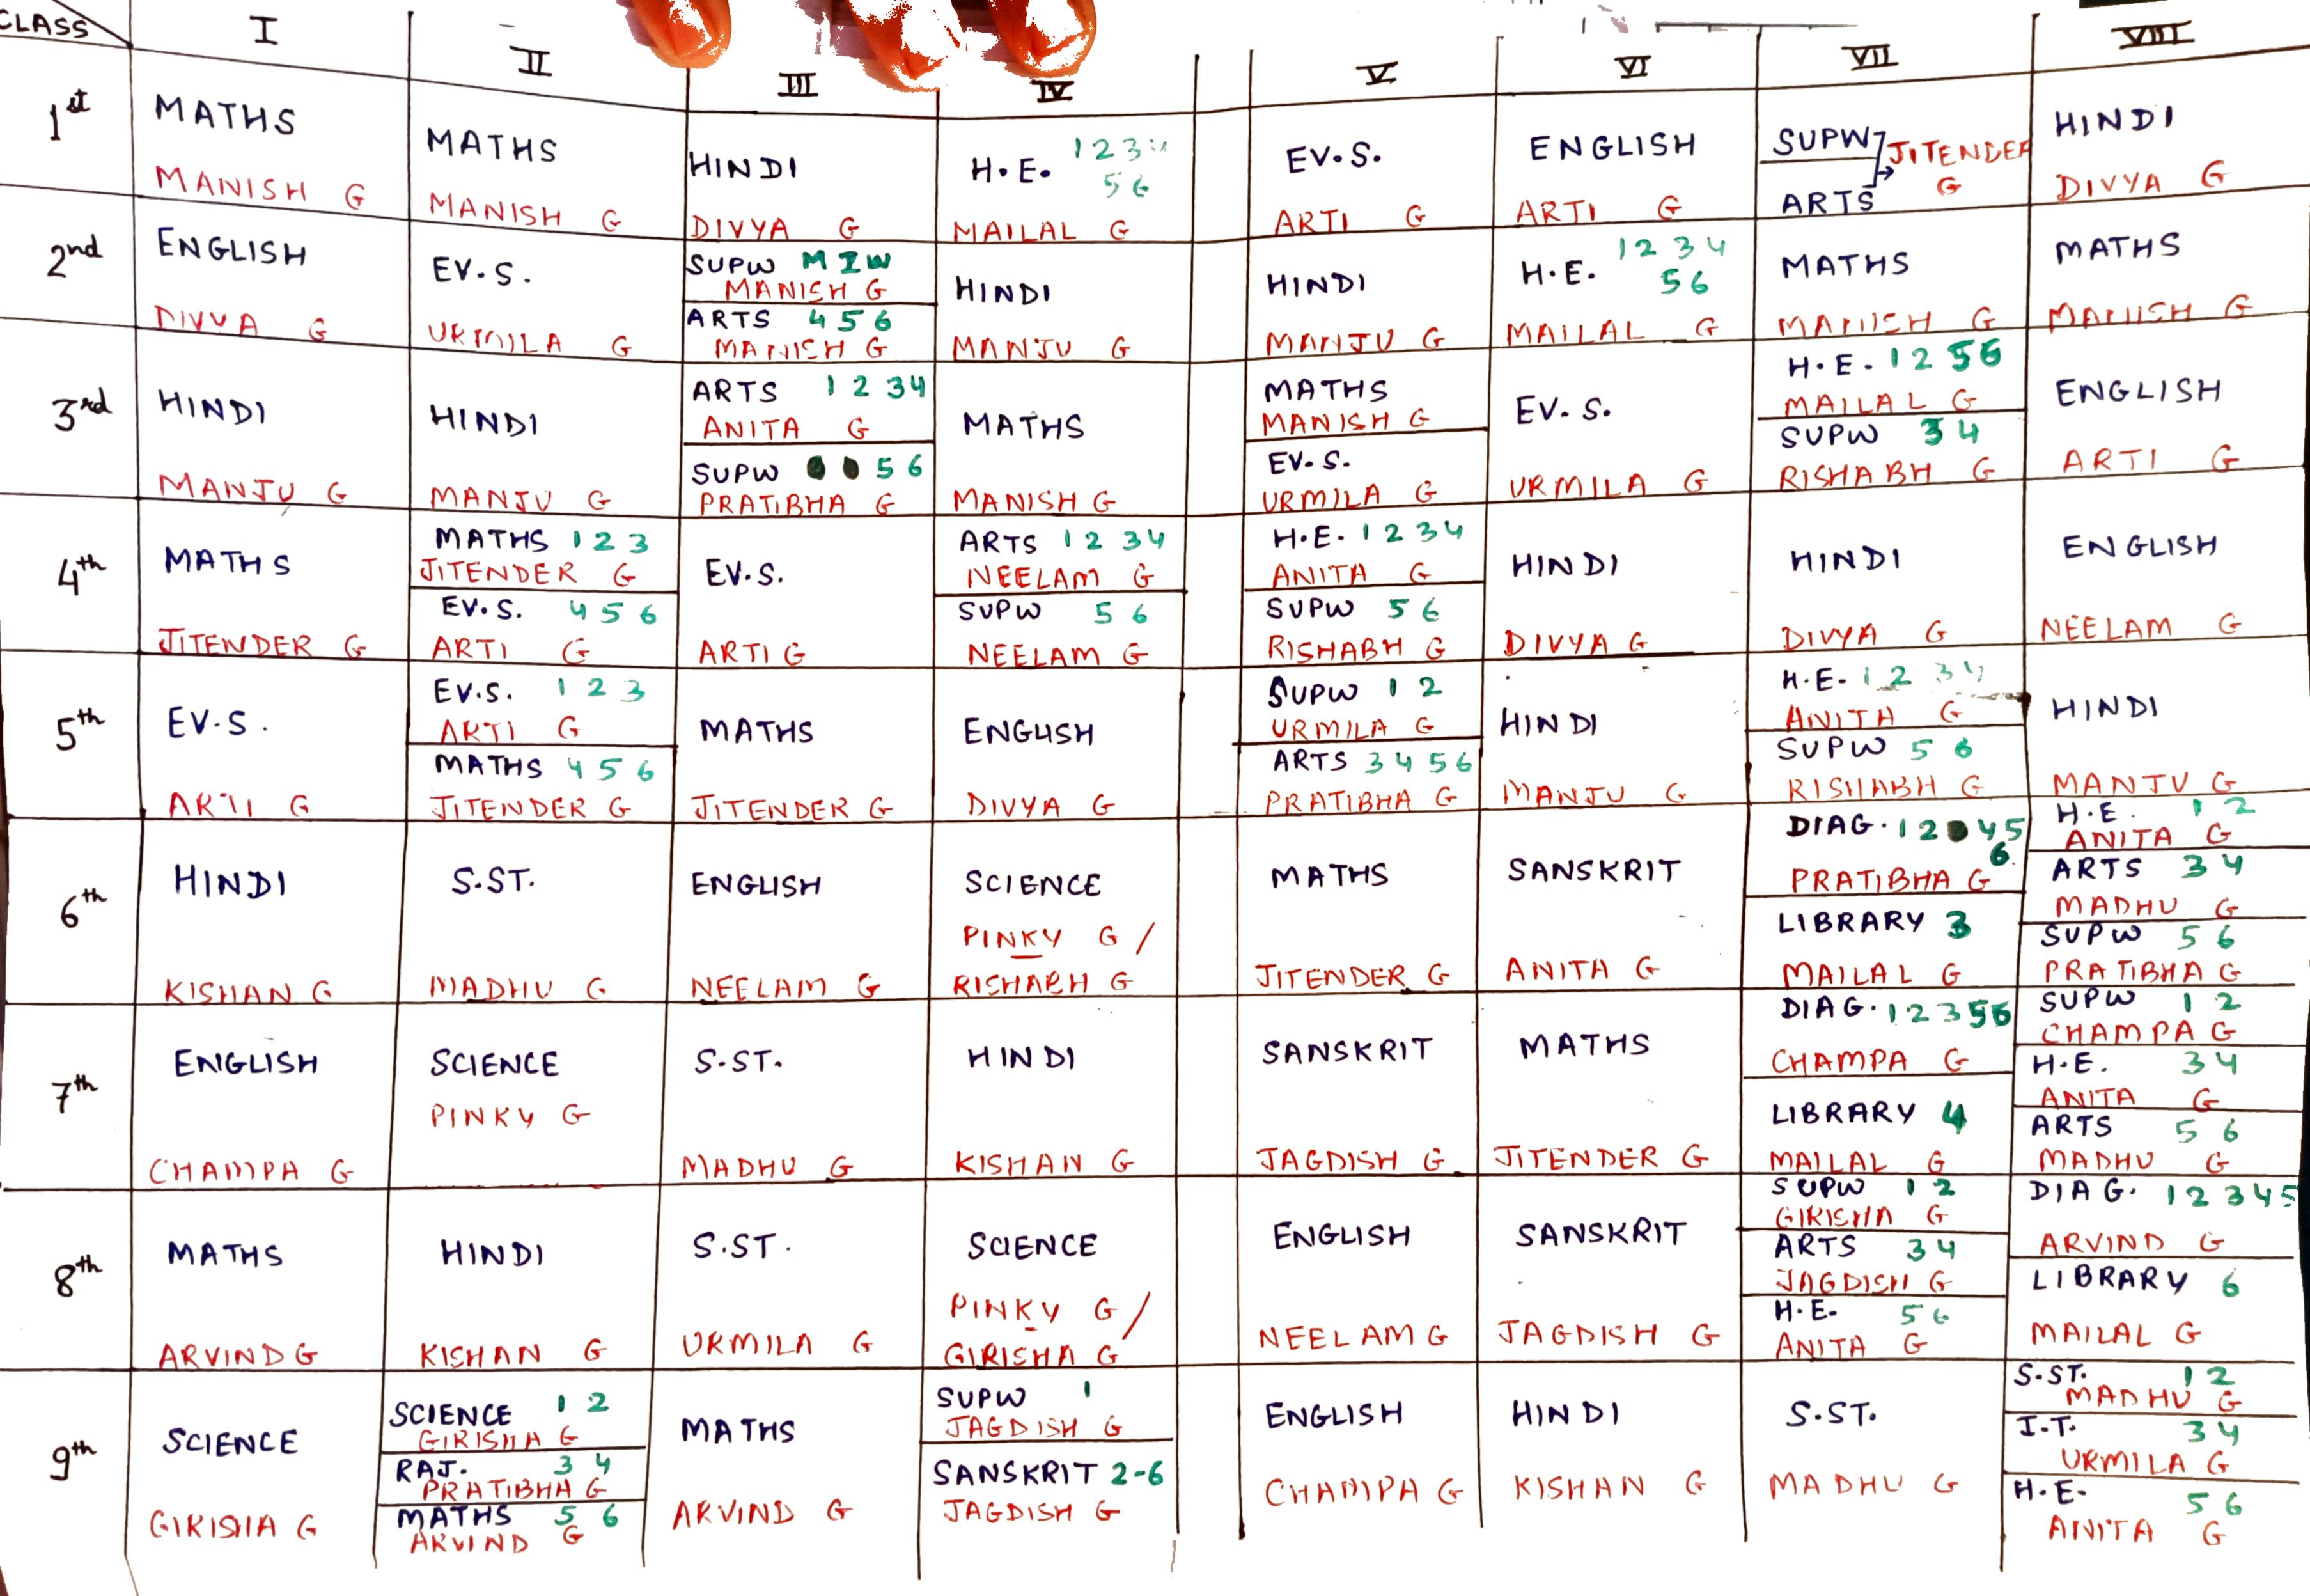 CLASS
I
II
III
IV
V
VI
VII
VIII
1st
MATHS
MANISH G
MATHS
MANISH G
HINDI
DIVYA G
H.E. 1 2 3
5 6
MAILAL G
EV.S.
ARTI G
ENGLISH
ARTI G
SUPW
ARTS
JITENDER
G
HINDI
DIVYA G
2nd
ENGLISH
DIVYA G
EV.S.
URMILA G
SUPW M I W
MANISH G
ARTS 4 5 6
MANISH G
HINDI
MANJU G
HINDI
MANJU G
H.E. 1 2 3 4
5 6
MAILAL G
MATHS
MANISH G
MATHS
MANISH G
3rd
HINDI
MANJU G
HINDI
MANJU G
ARTS 1 2 3 4
ANITA G
SUPW 5 6
PRATIBHA G
MATHS
MANISH G
MATHS
MANISH G
EV.S.
URMILA G
EV.S.
URMILA G
H.E. 1 2 5 6
MAILAL G
SUPW 3 4
RISHABH G
ENGLISH
ARTI G
4th
MATHS
JITENDER G
MATHS 1 2 3
JITENDER G
EV.S. 4 5 6
ARTI G
EV.S.
ARTI G
ARTS 1 2 3 4
NEELAM G
SUPW 5 6
NEELAM G
H.E. 1 2 3 4
ANITA G
SUPW 5 6
RISHABH G
HINDI
DIVYA G
HINDI
DIVYA G
ENGLISH
NEELAM G
5th
EV.S.
ARTI G
EV.S. 1 2 3
ARTI G
MATHS 4 5 6
JITENDER G
MATHS
JITENDER G
ENGLISH
DIVYA G
SUPW 1 2
URMILA G
ARTS 3 4 5 6
PRATIBHA G
HINDI
MANJU G
H.E. 1 2 3 4
ANITA G
SUPW 5 6
RISHABH G
HINDI
MANJU G
6th
HINDI
KISHAN G
S.ST.
MADHU G
ENGLISH
NEELAM G
SCIENCE
PINKY G /
RISHABH G
MATHS
JITENDER G
SANSKRIT
ANITA G
DIAG. 1 2 4 5
6
PRATIBHA G
LIBRARY 3
MAILAL G
H.E. 1 2
ANITA G
ARTS 3 4
MADHU G
SUPW 5 6
PRATIBHA G
7th
ENGLISH
CHAMPA G
SCIENCE
PINKY G
S.ST.
MADHU G
HINDI
KISHAN G
SANSKRIT
JAGDISH G
MATHS
JITENDER G
DIAG. 1 2 3 5 6
CHAMPA G
LIBRARY 4
MAILAL G
SUPW 1 2
CHAMPA G
H.E. 3 4
ANITA G
ARTS 5 6
MADHU G
8th
MATHS
ARVIND G
HINDI
KISHAN G
S.ST.
URMILA G
SCIENCE
PINKY G /
GIRISHA G
ENGLISH
NEELAM G
SANSKRIT
JAGDISH G
SUPW 1 2
GIRISHA G
ARTS 3 4
JAGDISH G
H.E. 5 6
ANITA G
DIAG. 1 2 3 4 5
ARVIND G
LIBRARY 6
MAILAL G
9th
SCIENCE
GIRISHA G
SCIENCE 1 2
GIRISHA G
RAJ. 3 4
PRATIBHA G
MATHS 5 6
ARVIND G
MATHS
ARVIND G
SUPW 1
JAGDISH G
SANSKRIT 2-6
JAGDISH G
ENGLISH
CHAMPA G
HINDI
KISHAN G
S.ST.
MADHU G
S.ST. 1 2
MADHU G
I.T. 3 4
URMILA G
H.E. 5 6
ANITA G